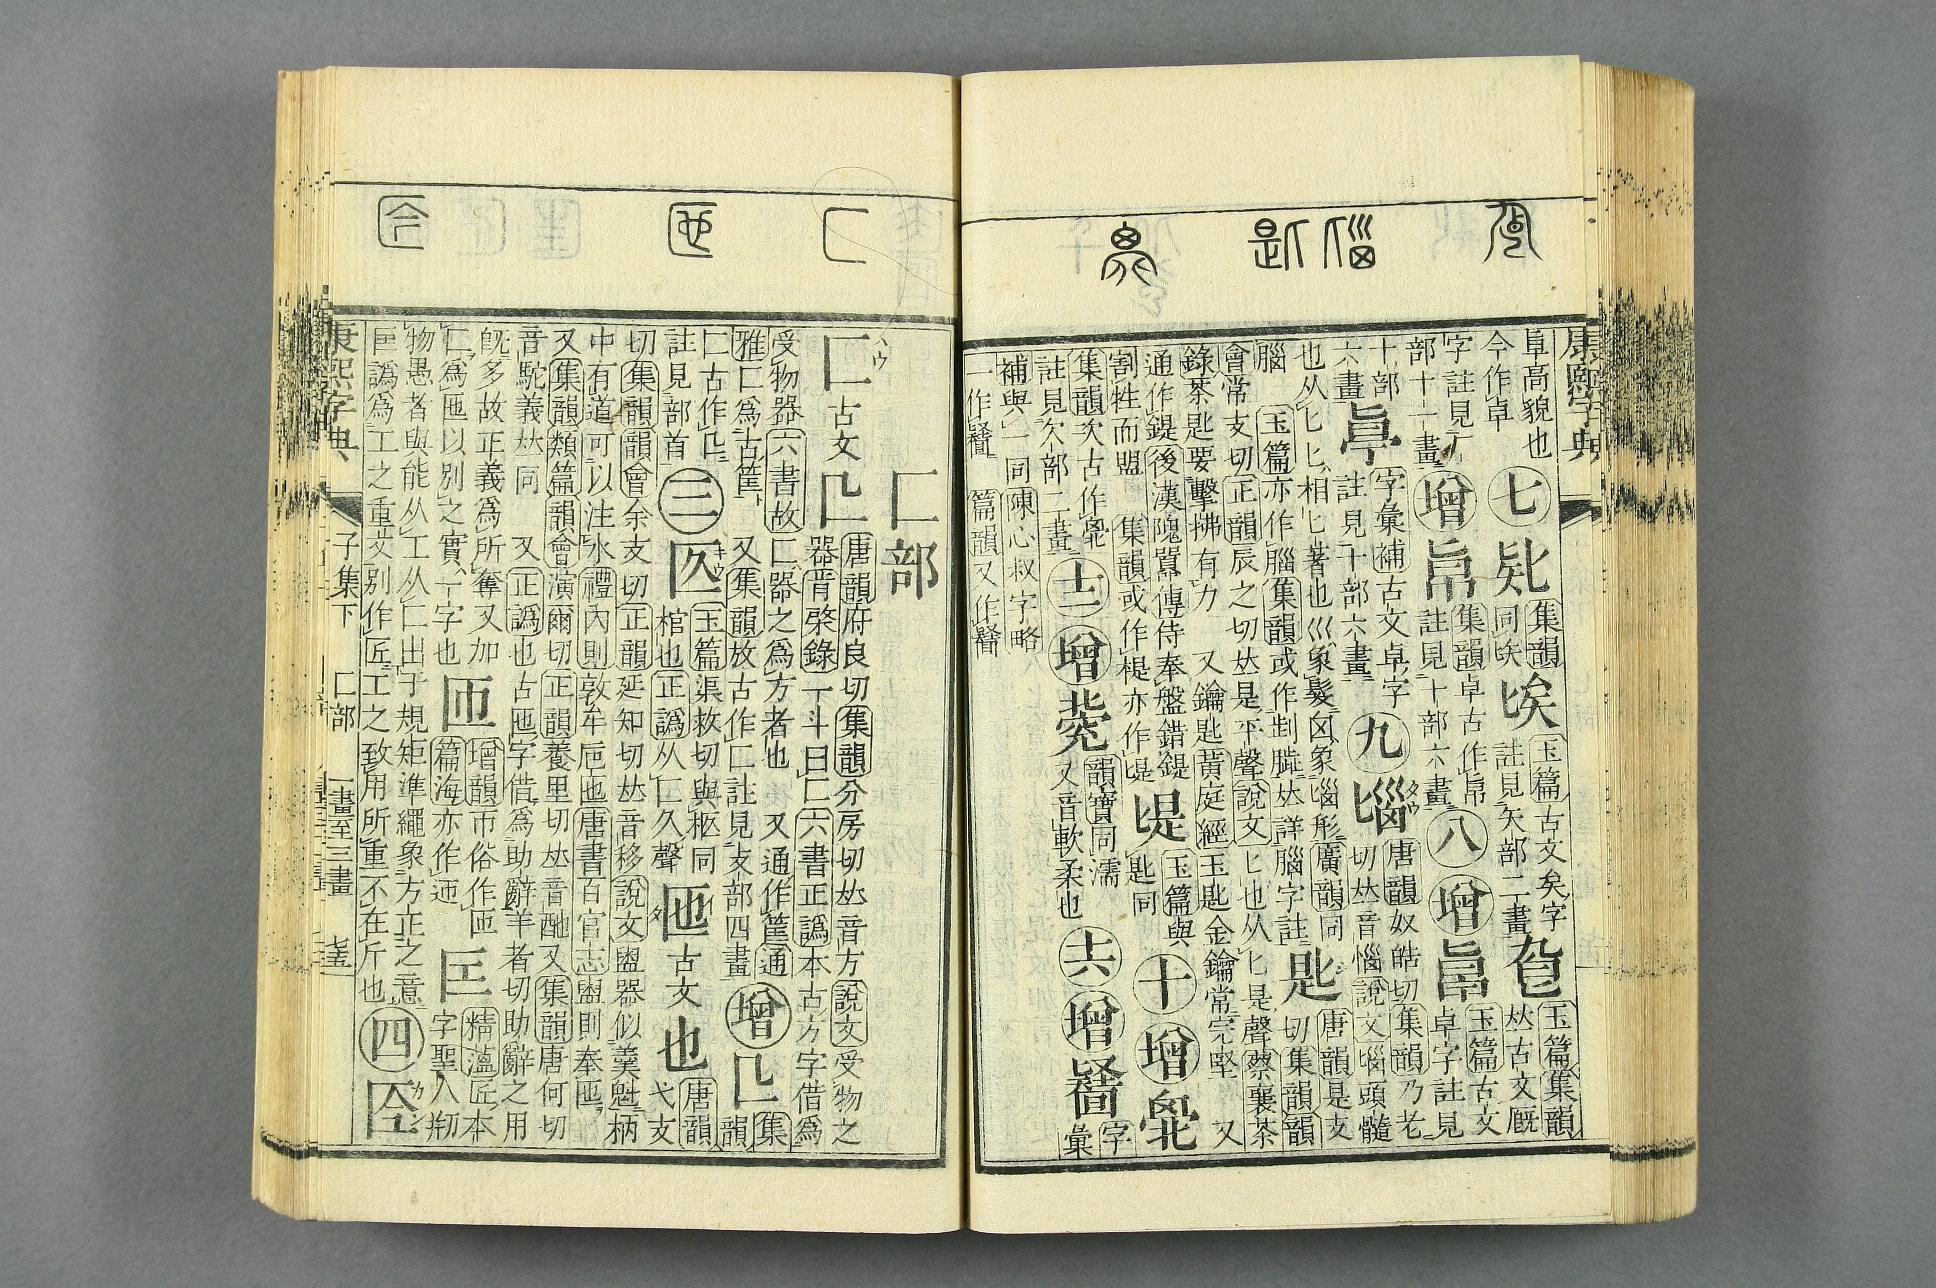 康熙字典
阜高貌也
今作卓
七
𠤗
集韻
同𠤕
玉篇古文矣字
註見矢部二畫
玉篇集韻
𠀤古文厩
字註見
部十一畫
增
集韻卓古作帠
註見十部六畫
八
增
玉篇古文
卓字註見
十部
六畫
字彙補古文卓字
註見十部六畫
九
𡿺
唐韻奴皓切集韻乃老
切𠀤音惱說文𡿺頭髓
也从匕匕相匕著也巛象髮囟象𡿺形廣韻同
腦
玉篇亦作腦集韻或作𠜶𦛁𠀤詳腦字註
匙
唐韻是支
切集韻韻
會常支切正韻辰之切𠀤是平聲說文匕也从匕是聲蔡襄茶
錄茶匙要重擊拂有力
又鑰匙黃庭經玉匙金鑰常完堅
又
通作鍉後漢隗囂傳侍奉盤錯鍉
玉篇與
匙同
割牲而盟
集韻或作㮛亦作
十
增
集韻次古作
註見欠部二畫
士
增
韻寶同濡
又音軟柔也
六
增
字
彙
補與
同陳心叔字略
一作
篇韻又作
匚部
匚
古文
𠃊
唐韻府良切集韻分房切𠀤音方說文受物之
器胥棨錄一斗曰匚六書正譌本古方字借爲
受物器六書故匚器之爲方者也
又通作筐通
雅匚爲古筐
又集韻放古作匚註見攴部四畫
增
𠃊
集
韻
匚古作𠃊
註見部首
三
匛
玉篇渠救切與柩同
棺也正譌从匚久聲
匜
古文
也
唐韻
弋支
切集韻韻會余支切正韻延知切𠀤音移說文盥器似羹魁柄
中有道可以注水禮內則敦牟卮匜唐書百官志盥則奉匜
又集韻類篇韻會演爾切正韻養里切𠀤音酏又集韻唐何切
音駝義𠀤同
又正譌也古匜字借爲助辭羊者切助辭之用
旣多故正義爲所奪又加
匚爲匜以別之實一字也
匝
增韻帀俗作匝
篇海亦作迊
匞
精薀匠本
字聖人剏
物愚者與能从工从匚出于規矩準繩象方正之意
叵譌爲工之重文別作匠工之致用所重不在斤也
四
康熙字典
子集下
匚部
一畫至三畫